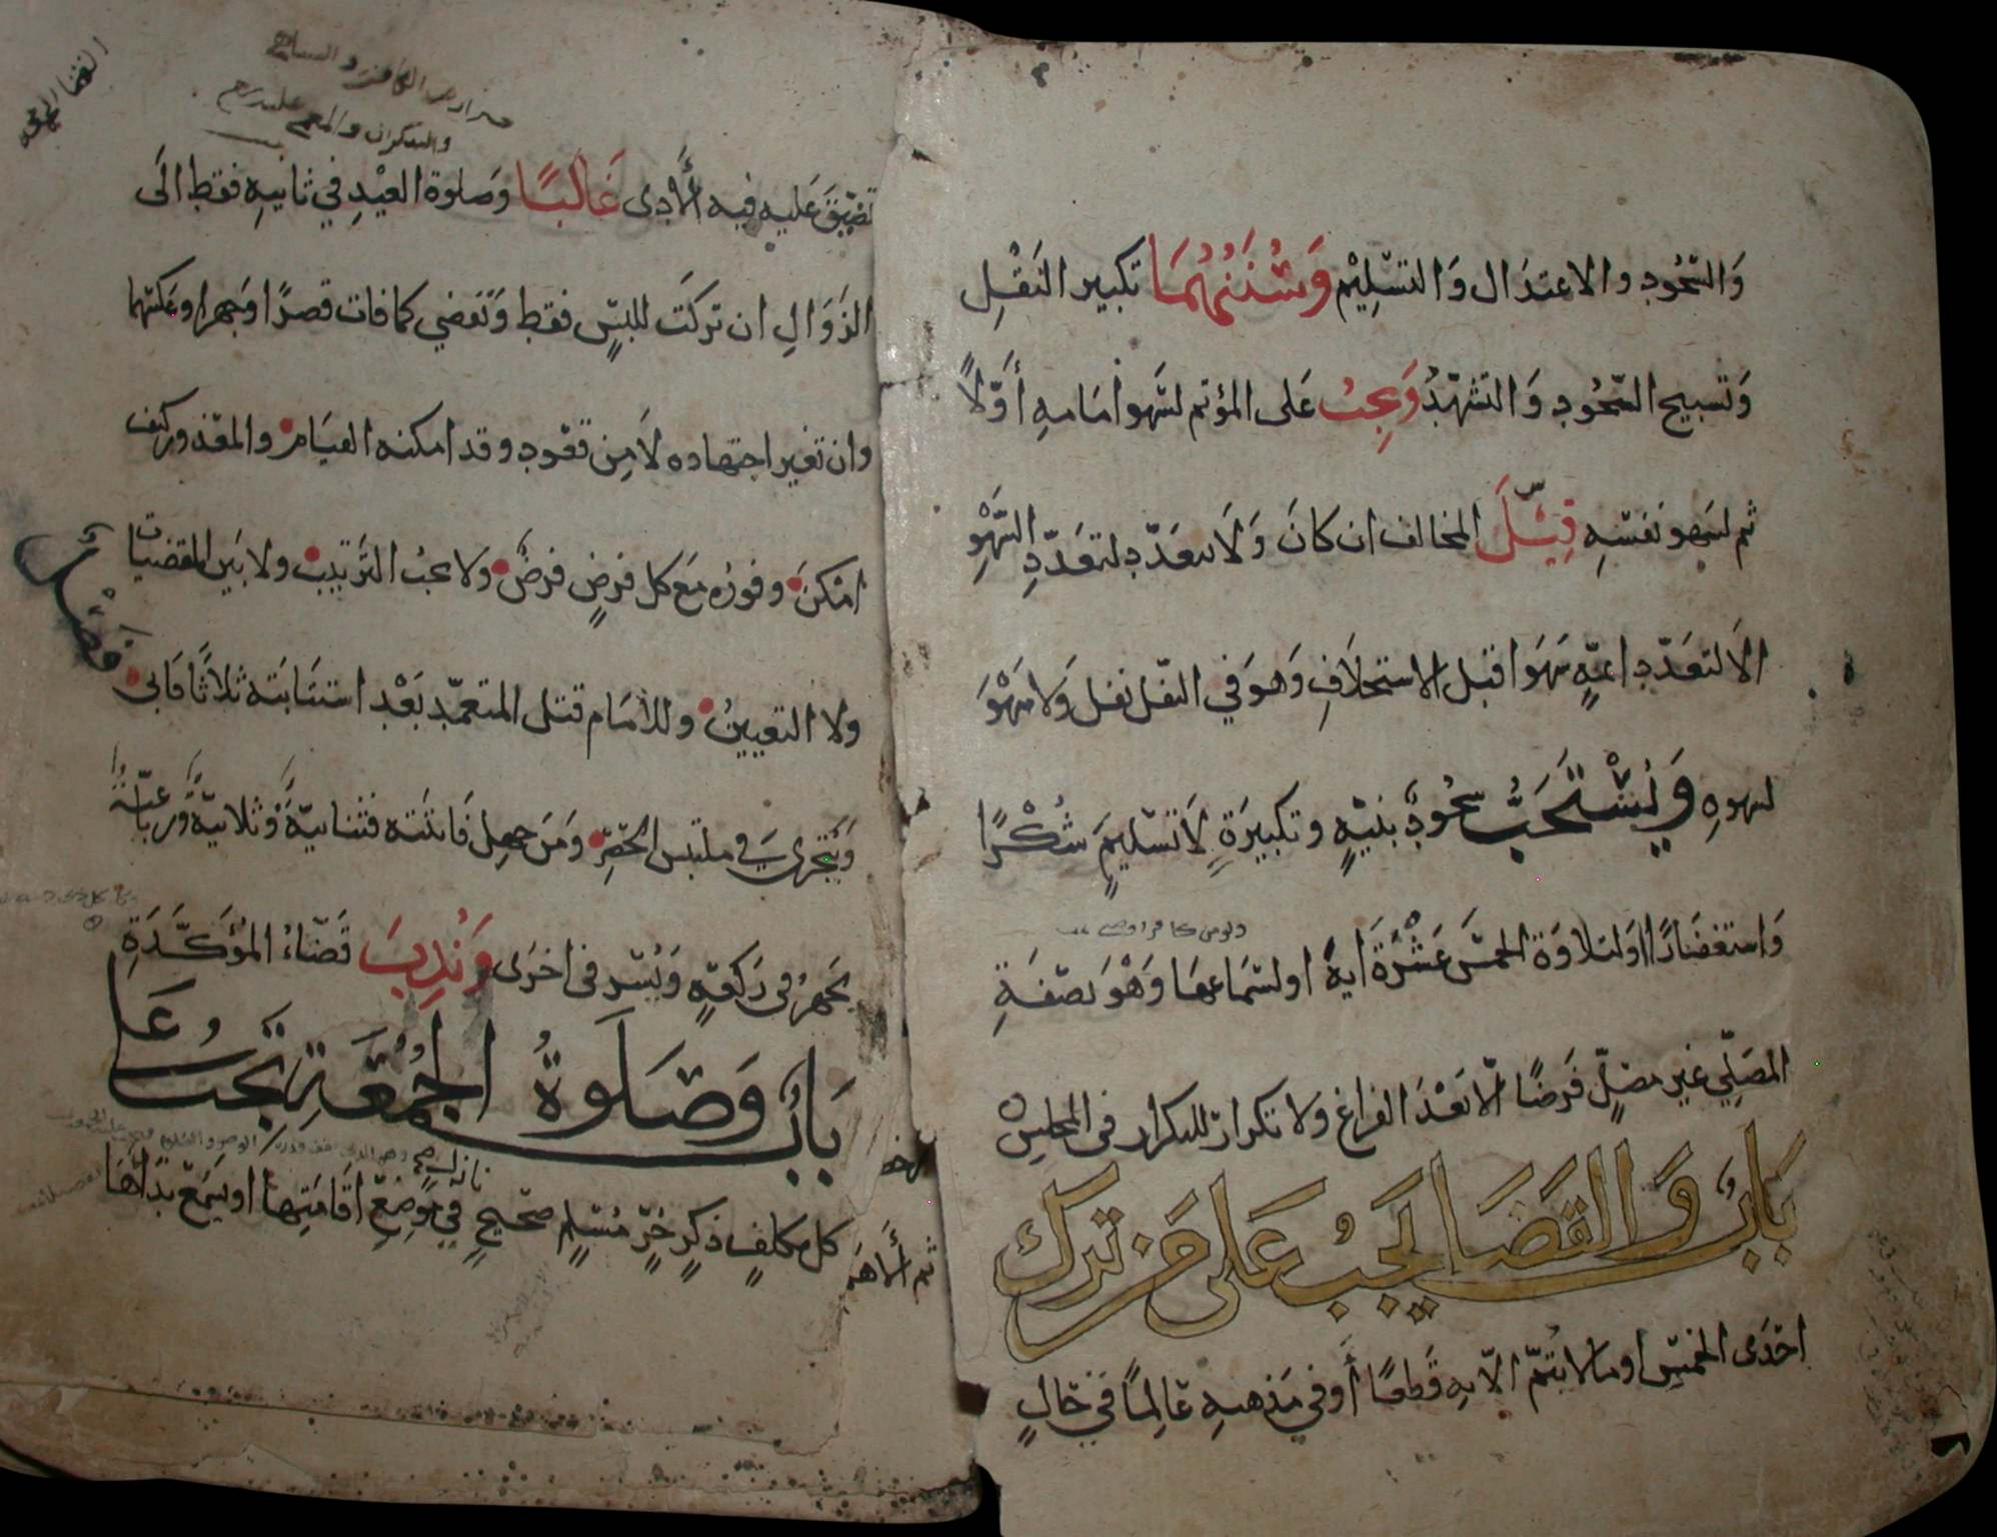 وَالسّجُودِ والاعتدَال وَالتسْلِيْم وَسُنَنُهُمَا تكبير النَقْلِ
وَتسبيح السّجُودِ وَالتشهّدُ وَيجبُ عَلى المؤتم لسَهو امَامهِ أوَّلاً
ثم لسَهو نفسِهِ قِيْلَ المخالف ان كانَ وَلَا يتعَدّد لتعَدّدِ السَّهْوِ
الاَ لتعَدّدِ ائمّةٍ سَهَوا قبل الاستخلَافِ وَهوَ في النفل نفل وَلا سَهْوَ
لسَهوهِ وَيُسْتَحَبُّ سجُودٌ بنيّةٍ وتكبيرَةٍ لَا تسْليمٍ شُكْرًا
وَاستغفَارًا اولتلاوَة الخمسَ عَشْرَةَ ايةً او لسَمَاعهَا وَهْوَ بصفَةِ
المصَلّي غير مصَلٍّ فَرضًا الّا بَعْدَ الفراغ ولا تكرار للتكرار في المجلسِ
بَابٌ وَالقَضَا يَجبُ عَلى مَن ترك
احْدَى الخمْسِ او مَالا يَتمّ الّا بهِ قَطعًا أَوْ في مَذهبهِ عَالِمًا في حَالٍ
القضا
تضيّقَ عَليهِ فيهِ الأدى غَالبًا وَصَلوة العيْدِ في ثانيهِ فقط الَى
الزوَالِ ان ترَكَت للبسٍ فقط وَتقضي كما فات قصرًا وَجهرا وعكسَهُما
وان تغير اجتهاده لَا مِن قعُودٍ وقد امكنه القيَام والمعذور كيف
امْكنَ وفورُه مَع كل فرضٍ فرضٌ ولا يجبُ الترَتيبُ ولا بَين المقضيات
فصل
ولا التعيينُ وللامَام قتل المتعمّد بَعْد استتَابَته ثلاثًا فَابى
وَيتَحرى في ملتبس الحَصْرِ وَمَن جهِل فَائتَته فثنائيّةً وَثلاثيّةً وَرباعيّةً
يجهرُ في رَكعَةٍ وَيُسّر في اخرَى وَنُدِبَ قَضَاءُ المُؤكَّدَةِ
بَابٌ وَصَلَوةُ الجُمُعَةِ تَجبُ عَلى
كل مكلفٍ ذكرٍ حُرٍّ مُسْلمٍ صحيحٍ نازلٍ في مَوضعِ اقامَتِها او يَسْمَع ندَاهَا